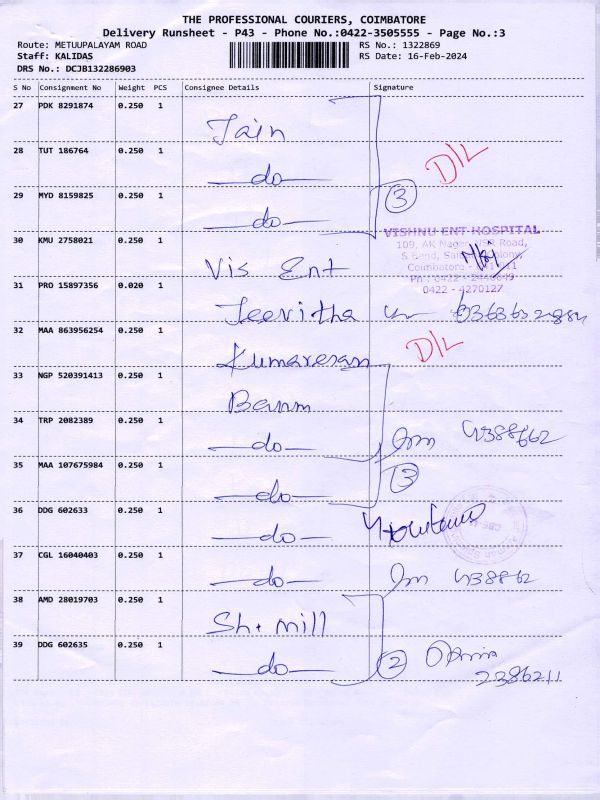 THE PROFESSIONAL COURIERS, COIMBATORE
Delivery Runsheet - P43 - Phone No.:0422-3505555 - Page No.:3
Route: METUUPALAYAM ROAD
Staff: KALIDAS
DRS No.: DCJB132286903
RS No.: 1322869
RS Date: 16-Feb-2024
S No Consignment No Weight PCS Consignee Details Signature
27 PDK 8291874 0.250 1
Jain
28 TUT 186764 0.250 1
do
D/L
29 MYD 8159825 0.250 1
do
3
30 KMU 2758021 0.250 1
Vis Ent
VISHNU ENT HOSPITAL
109, AK Nagar, Road,
Coimbatore
0422 - 4270127
31 PRO 15897356 0.020 1
Jeevitha
32 MAA 863956254 0.250 1
Kumaresan
D/L
33 NGP 520391413 0.250 1
34 TRP 2082389 0.250 1
do
35 MAA 107675984 0.250 1
do
3
36 DDG 602633 0.250 1
do
37 CGL 16040403 0.250 1
do
38 AMD 28019703 0.250 1
Sh. mill
39 DDG 602635 0.250 1
do
2
2386211